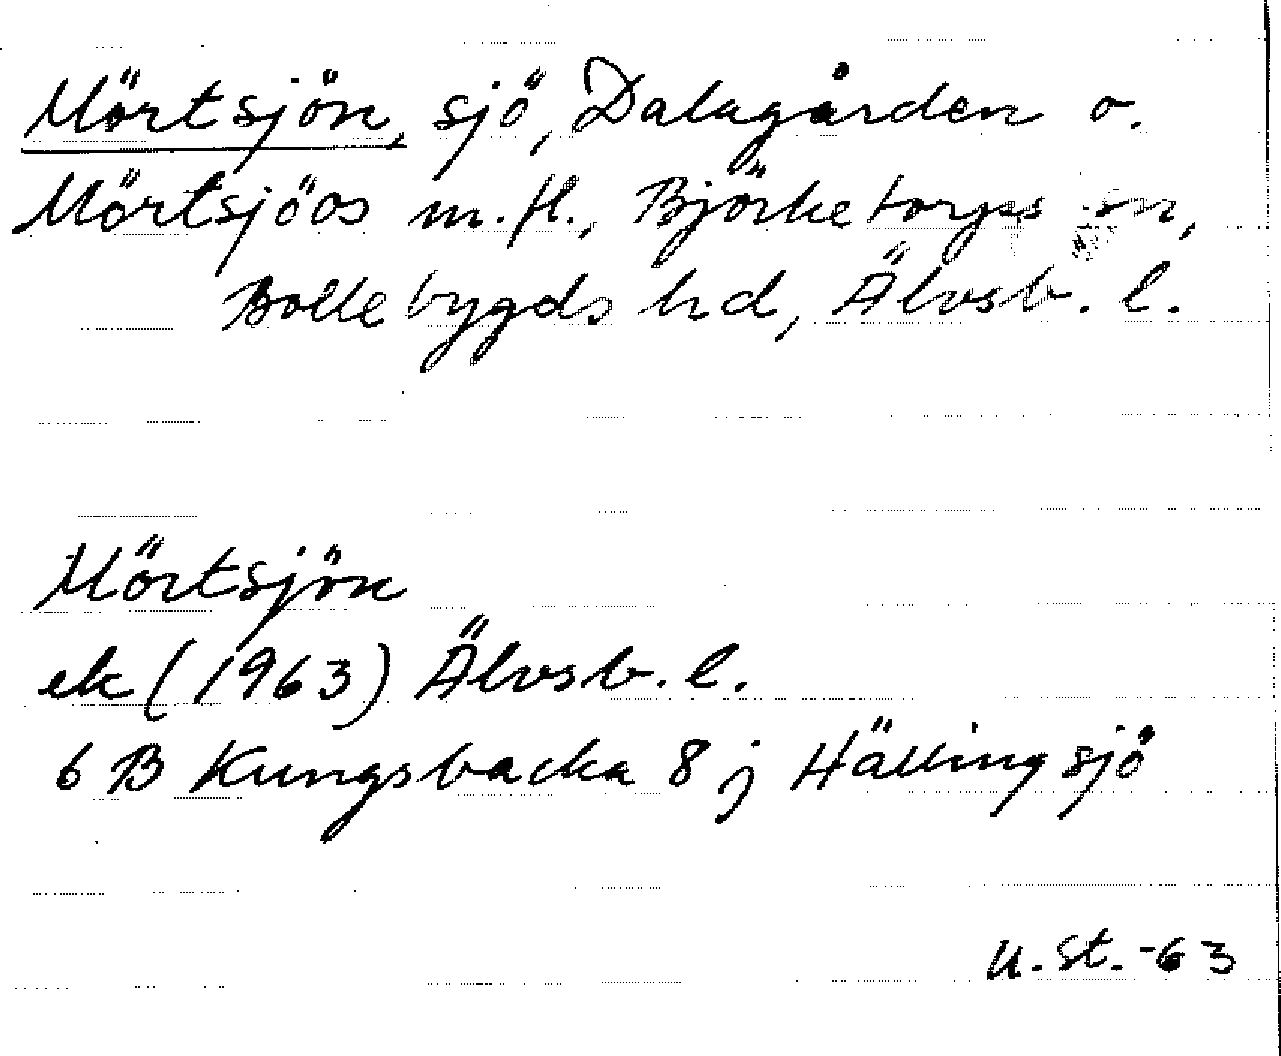 Mörtsjön, sjö, Dalagården o.
Mörtsjöos m.fl., Björketorps sn,
Bollebygds hd, Älvsb. l.
Mörtsjön
ek (1963) Älvsb. l.
6 B Kungsbacka 8 j Hällingsjö
U. St. -63